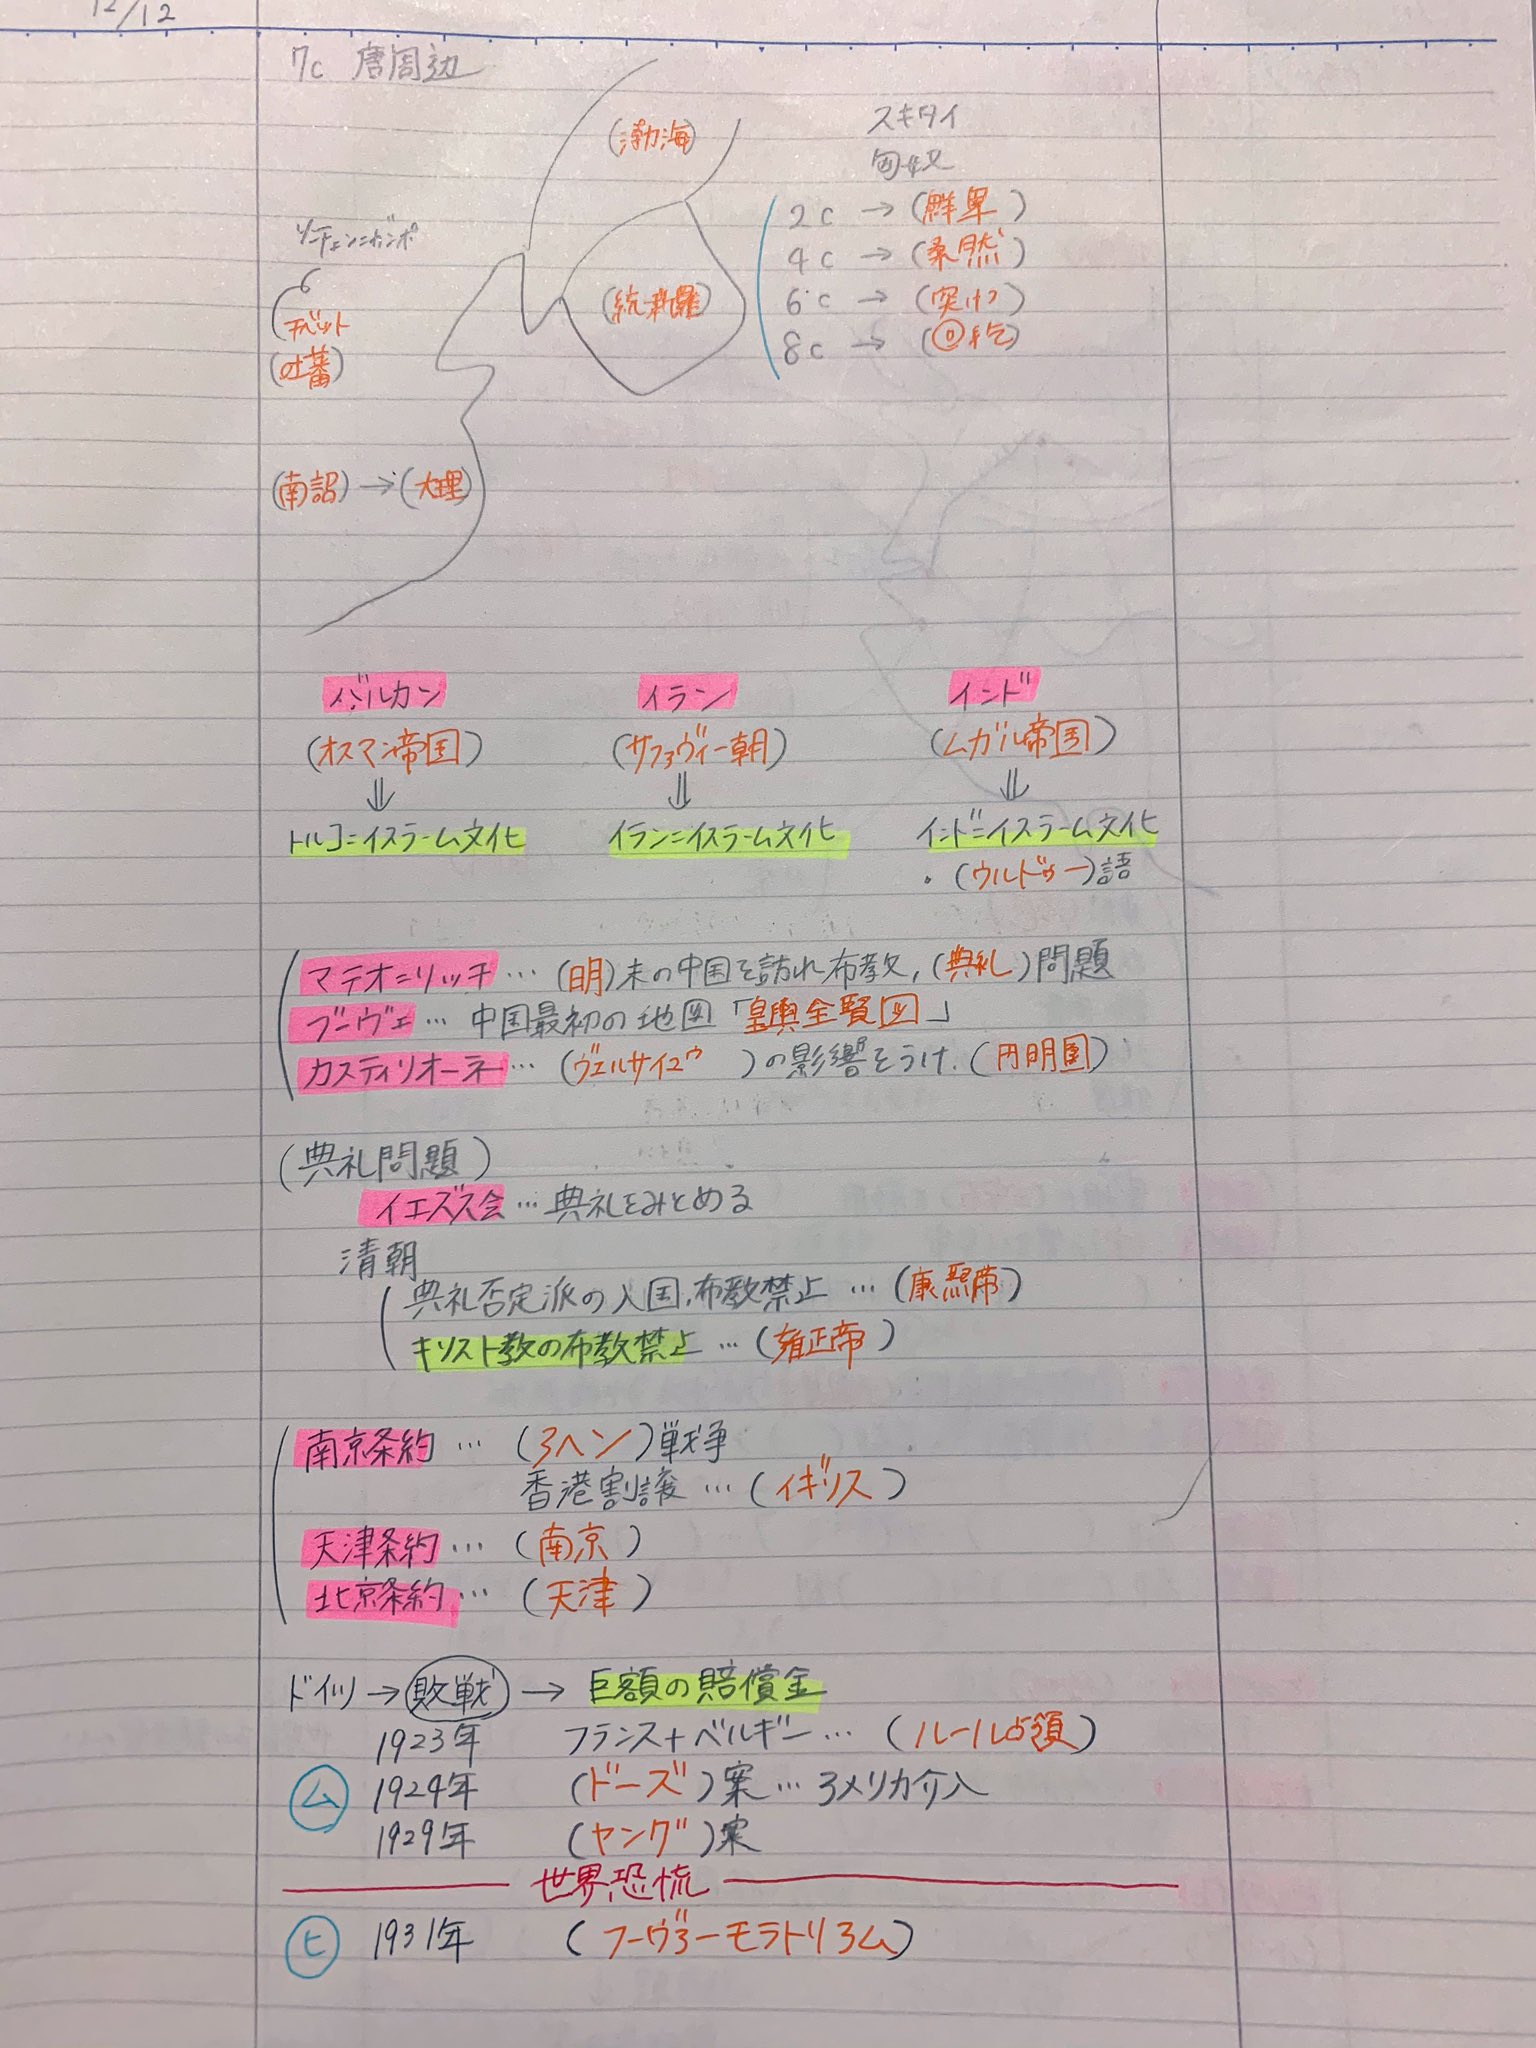 12/12
7c 唐周辺
(渤海)
スキタイ
匈奴
2c → (鮮卑)
4c → (柔然)
6c → (突けつ)
8c → (回紇)
ソンチェン=ガンポ
チベット
(吐蕃)
(統一新羅)
(南詔) → (大理)
バルカン イラン インド
(オスマン帝国) (サファヴィー朝) (ムガル帝国)
⇓ ⇓ ⇓
トルコ=イスラーム文化 イラン=イスラーム文化 インド=イスラーム文化
・(ウルドゥー)語
マテオ=リッチ … (明)末の中国を訪れ布教, (典礼)問題
ブーヴェ … 中国最初の地図「皇輿全覧図」
カスティリオーネ … (ヴェルサイユウ )の影響をうけ. (円明園)
(典礼問題)
イエズス会 … 典礼をみとめる
清朝
典礼否定派の入国, 布教禁止 … (康熙帝)
キリスト教の布教禁止 … (雍正帝)
南京条約 … (アヘン)戦争
香港割譲 … (イギリス)
天津条約 … (南京)
北京条約 … (天津)
ドイツ → 敗戦 → 巨額の賠償金
1923年 フランス+ベルギー … (ルール占領)
ム 1924年 (ドーズ)案 … アメリカ介入
1929年 (ヤング)案
世界恐慌
ヒ 1931年 (フーヴァーモラトリアム)